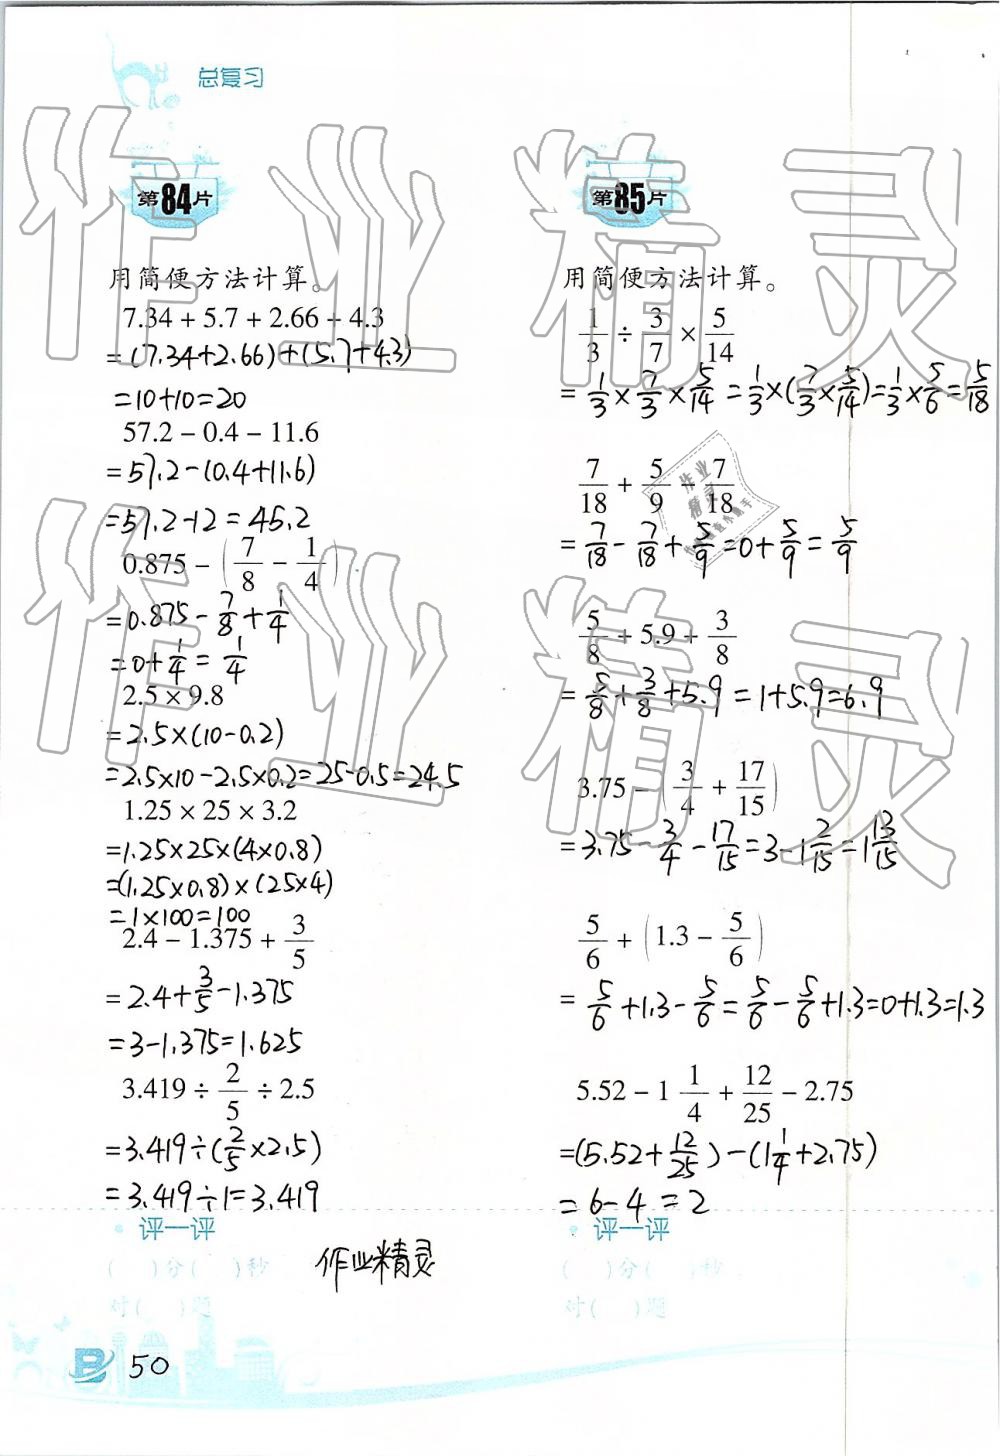 总复习
第84片
用简便方法计算。
7.34 + 5.7 + 2.66 + 4.3
=(7.34+2.66)+(5.7+4.3)
=10+10=20
57.2 - 0.4 - 11.6
=57.2-(0.4+11.6)
=57.2-12=45.2
0.875 - (7/8 - 1/4)
=0.875-7/8+1/4
=0+1/4=1/4
2.5 × 9.8
=2.5×(10-0.2)
=2.5×10-2.5×0.2=25-0.5=24.5
1.25 × 25 × 3.2
=1.25×25×(4×0.8)
=(1.25×0.8)×(25×4)
=1×100=100
2.4 - 1.375 + 3/5
=2.4+3/5-1.375
=3-1.375=1.625
3.419 ÷ 2/5 ÷ 2.5
=3.419÷(2/5×2.5)
=3.419÷1=3.419
评一评
( )分( )秒
对( )题
第85片
用简便方法计算。
1/3 ÷ 3/7 × 5/14
=1/3×7/3×5/14=1/3×(7/3×5/14)=1/3×5/6=5/18
7/18 + 5/9 - 7/18
=7/18-7/18+5/9=0+5/9=5/9
5/8 + 5.9 + 3/8
=5/8+3/8+5.9=1+5.9=6.9
3.75 - (3/4 + 17/15)
=3.75-3/4-17/15=3-1 2/15=1 13/15
5/6 + (1.3 - 5/6)
=5/6+1.3-5/6=5/6-5/6+1.3=0+1.3=1.3
5.52 - 1 1/4 + 12/25 - 2.75
=(5.52+12/25)-(1 1/4+2.75)
=6-4=2
评一评
( )分( )秒
对( )题
作业精灵
B 50
作业精灵
作业精灵
作业精灵